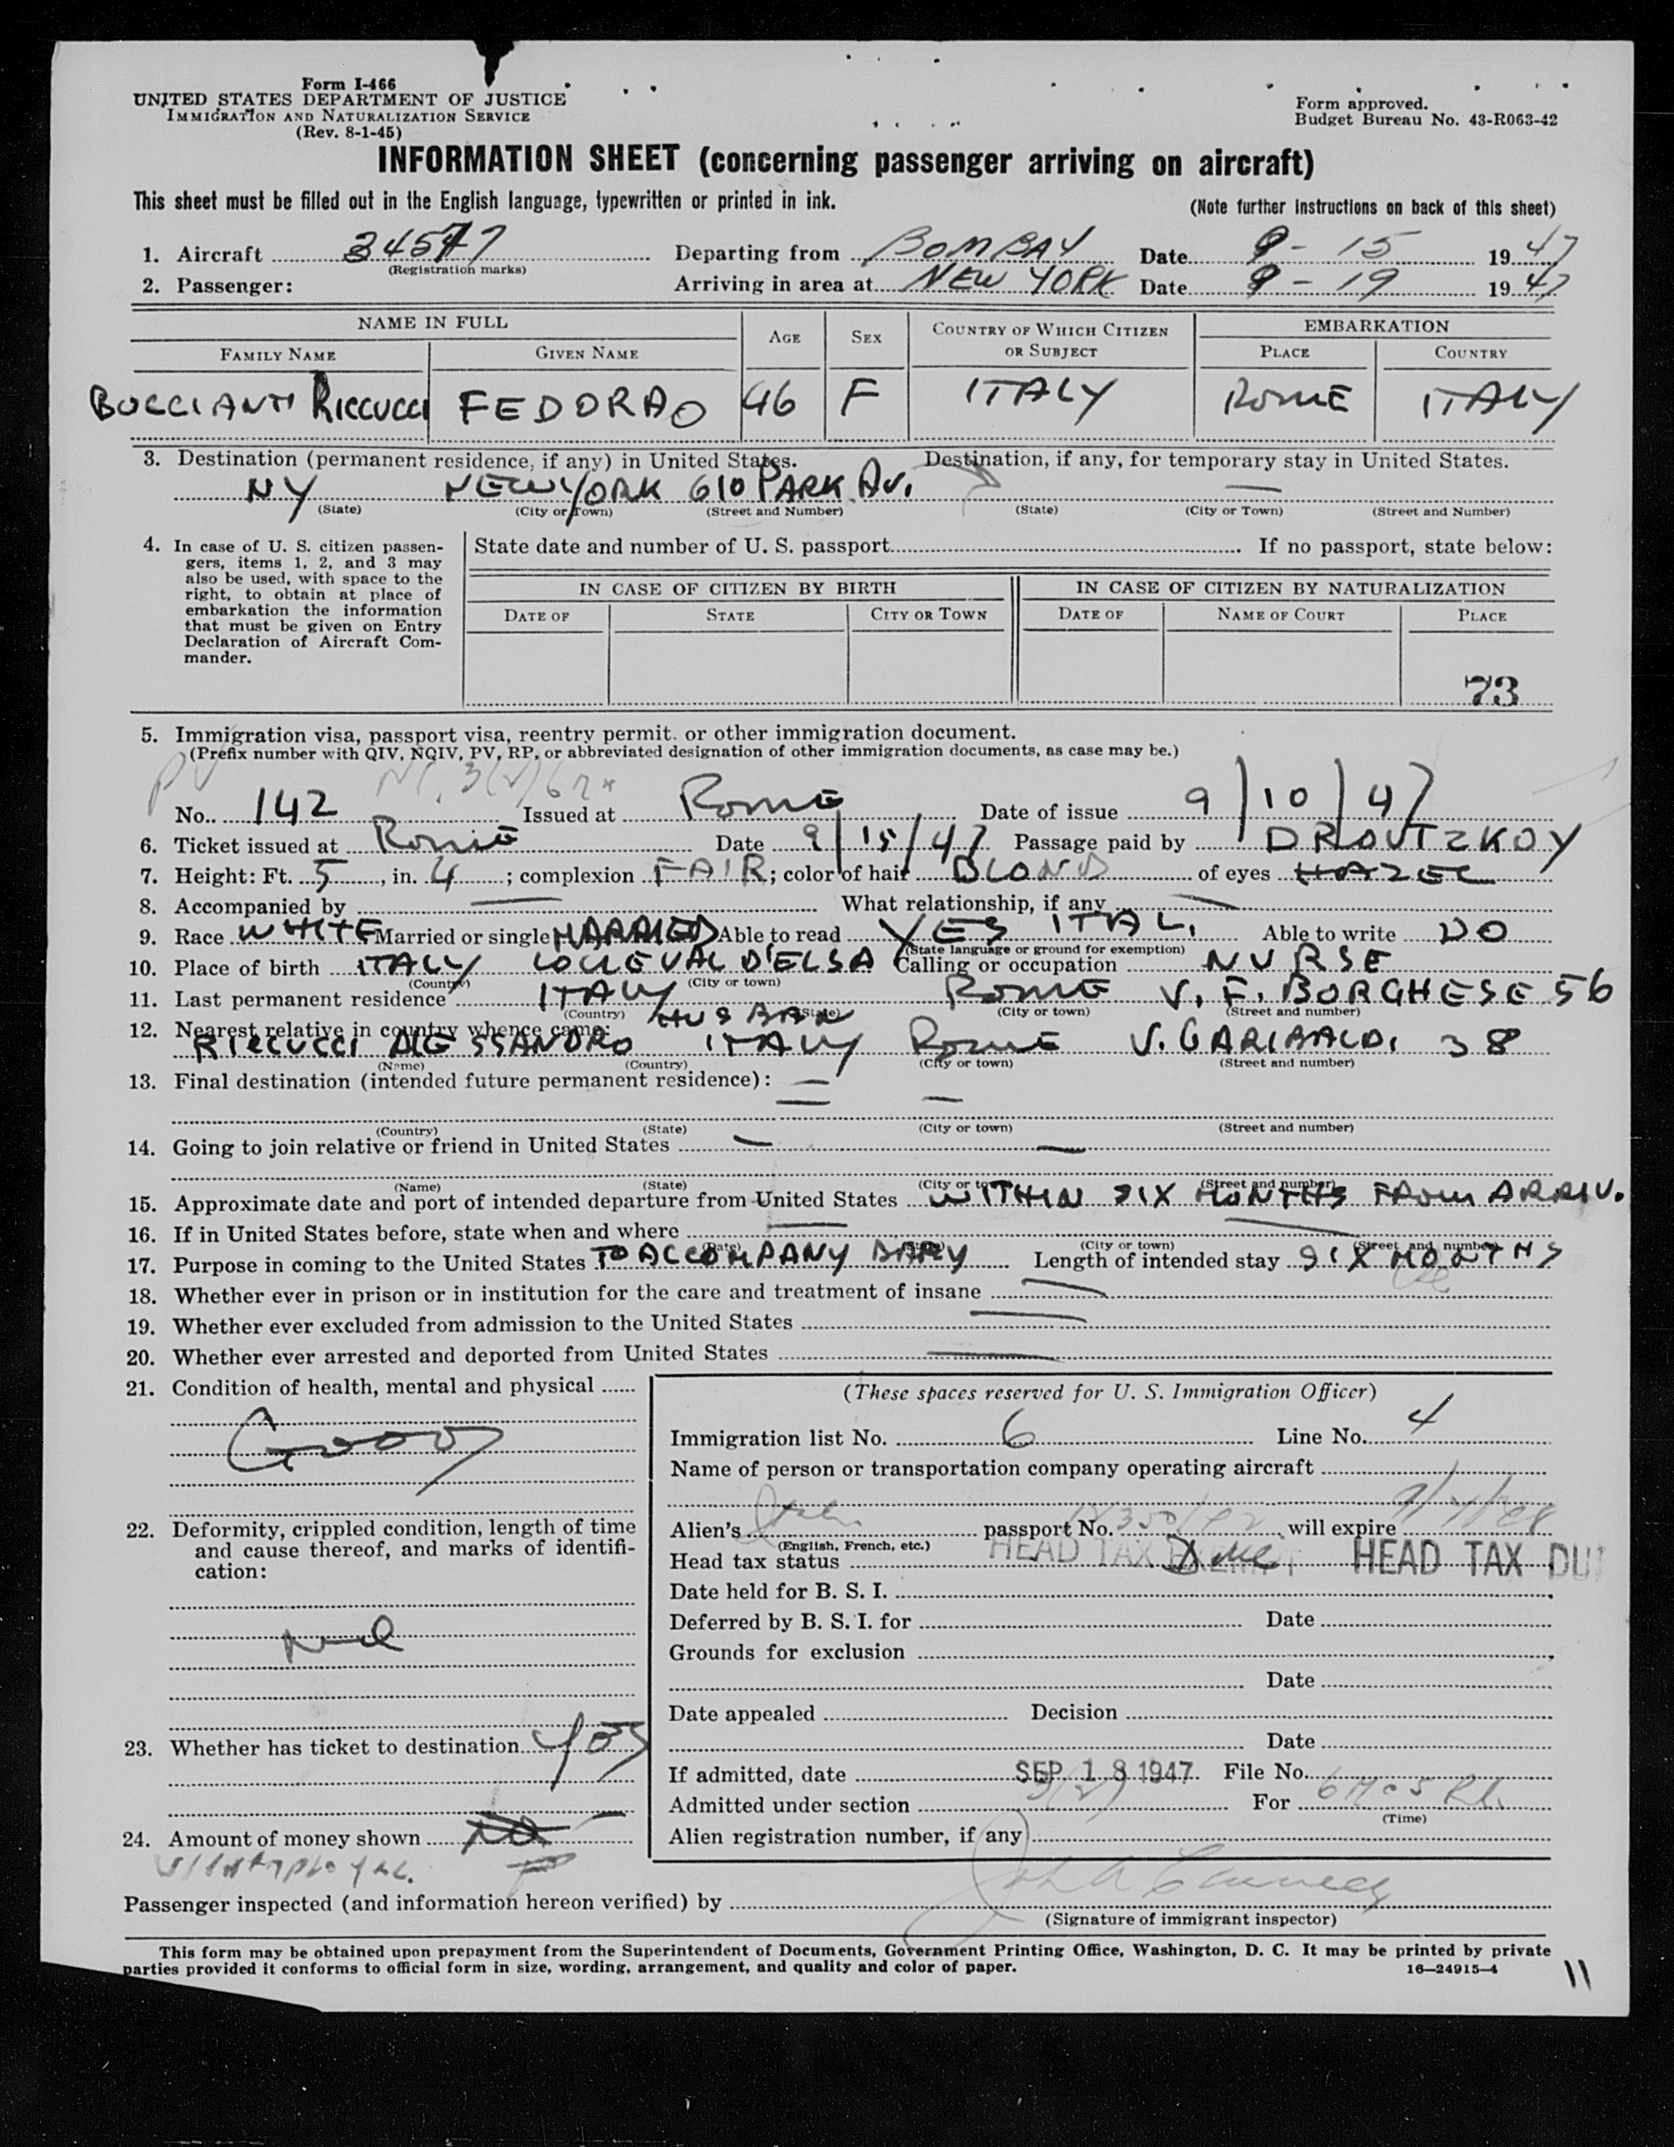 Form I-466
UNITED STATES DEPARTMENT OF JUSTICE
IMMIGRATION AND NATURALIZATION SERVICE
(Rev. 8-1-45)
Form approved.
Budget Bureau No. 43-R063-42
INFORMATION SHEET (concerning passenger arriving on aircraft)
This sheet must be filled out in the English language, typewritten or printed in ink.
(Note further instructions on back of this sheet)
1. Aircraft 34547 Departing from BOMBAY Date 9-15 1947
(Registration marks)
2. Passenger: Arriving in area at NEW YORK Date 9-19 1947
NAME IN FULL AGE SEX COUNTRY OF WHICH CITIZEN OR SUBJECT EMBARKATION
FAMILY NAME GIVEN NAME PLACE COUNTRY
BUCCIANTI RICCUCCI FEDORA 46 F ITALY ROME ITALY
3. Destination (permanent residence, if any) in United States. Destination, if any, for temporary stay in United States.
NY NEW YORK 610 PARK AV. —
(State) (City or Town) (Street and Number) (State) (City or Town) (Street and Number)
4. In case of U. S. citizen passengers, items 1, 2, and 3 may also be used, with space to the right, to obtain at place of embarkation the information that must be given on Entry Declaration of Aircraft Commander.
State date and number of U. S. passport If no passport, state below:
IN CASE OF CITIZEN BY BIRTH IN CASE OF CITIZEN BY NATURALIZATION
DATE OF STATE CITY OR TOWN DATE OF NAME OF COURT PLACE
73
5. Immigration visa, passport visa, reentry permit, or other immigration document.
(Prefix number with QIV, NQIV, PV, RP, or abbreviated designation of other immigration documents, as case may be.)
PV
No. 142 Issued at ROME Date of issue 9/10/47
6. Ticket issued at ROME Date 9/15/47 Passage paid by DROUTZKOY
7. Height: Ft. 5, in. 4; complexion FAIR; color of hair BLOND of eyes HAZEL
8. Accompanied by — What relationship, if any —
9. Race WHITE Married or single MARRIED Able to read YES ITAL. Able to write DO
(State language or ground for exemption)
10. Place of birth ITALY COLLE VAL D'ELSA Calling or occupation NURSE
(Country) (City or town)
11. Last permanent residence ITALY ROME V. F. BORGHESE 56
(Country) (State) (City or town) (Street and number)
12. Nearest relative in country whence came: HUSBAN
RICCUCCI ALESSANDRO ITALY ROME V. GARIBALDI 38
(Name) (Country) (City or town) (Street and number)
13. Final destination (intended future permanent residence): —
— —
(Country) (State) (City or town) (Street and number)
14. Going to join relative or friend in United States — —
(Name) (State) (City or town) (Street and number)
15. Approximate date and port of intended departure from United States WITHIN SIX MONTHS FROM ARRIV.
16. If in United States before, state when and where — —
(Date) (City or town) (Street and number)
17. Purpose in coming to the United States TO ACCOMPANY BABY Length of intended stay SIX MONTHS
18. Whether ever in prison or in institution for the care and treatment of insane —
19. Whether ever excluded from admission to the United States —
20. Whether ever arrested and deported from United States —
21. Condition of health, mental and physical
GOOD
22. Deformity, crippled condition, length of time and cause thereof, and marks of identification:
23. Whether has ticket to destination YES
24. Amount of money shown
(These spaces reserved for U. S. Immigration Officer)
Immigration list No. 6 Line No. 4
Name of person or transportation company operating aircraft
Alien's passport No. will expire
(English, French, etc.)
Head tax status HEAD TAX EXEMPT HEAD TAX DU
Date held for B. S. I.
Deferred by B. S. I. for Date
Grounds for exclusion
Date
Date appealed Decision
Date
If admitted, date SEP 18 1947 File No.
Admitted under section 3(2) For 6 mos
(Time)
Alien registration number, if any
Passenger inspected (and information hereon verified) by
(Signature of immigrant inspector)
This form may be obtained upon prepayment from the Superintendent of Documents, Government Printing Office, Washington, D. C. It may be printed by private
parties provided it conforms to official form in size, wording, arrangement, and quality and color of paper.
16—24915-4
11